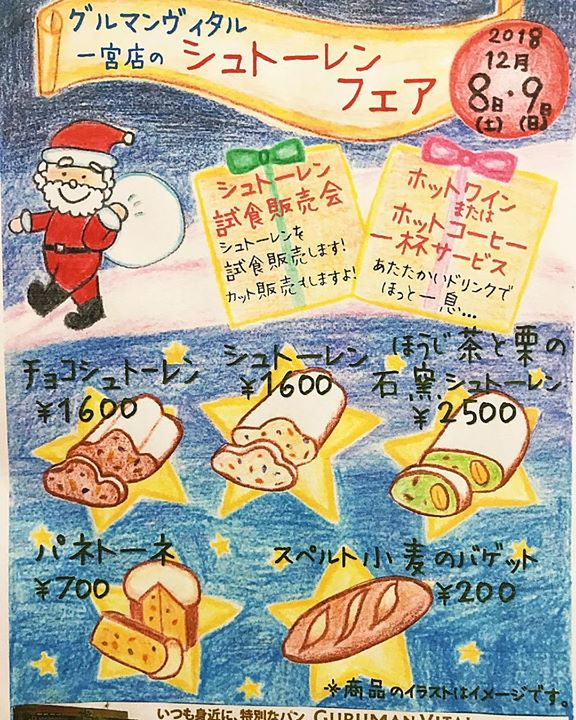 グルマンヴィタル
一宮店の
シュトーレン
フェア
2018
12月
8日・9日
(土) (日)
シュトーレン
試食販売会
シュトーレンを
試食販売します!
カット販売もしますよ!
ホットワイン
または
ホットコーヒー
一杯サービス
あたたかいドリンクで
ほっと一息…
チョコシュトーレン
¥1600
シュトーレン
¥1600
ほうじ茶と栗の
石窯シュトーレン
¥2500
パネトーネ
¥700
スペルト小麦のバゲット
¥200
※商品のイラストはイメージです。
いつも身近に、特別なパン GURUMAN VITAL